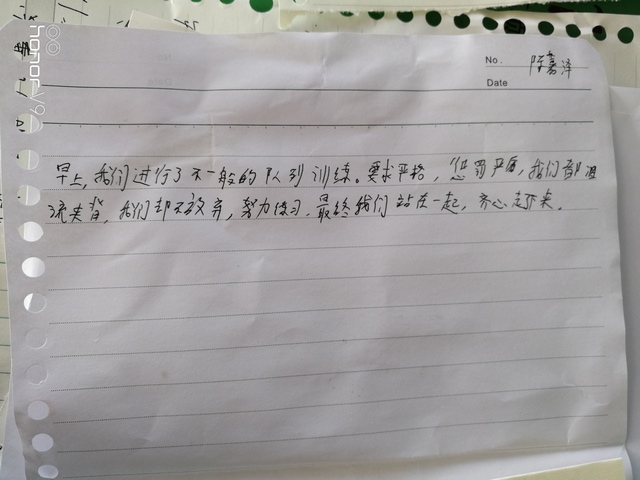 honor V9
No. 陈嘉泽
Date
早上,我们进行了不一般的队列训练。要求严格,惩罚严厉,我们都
流夹背,我们却不放弃,努力练习,最终我们站在一起,齐心走下来。